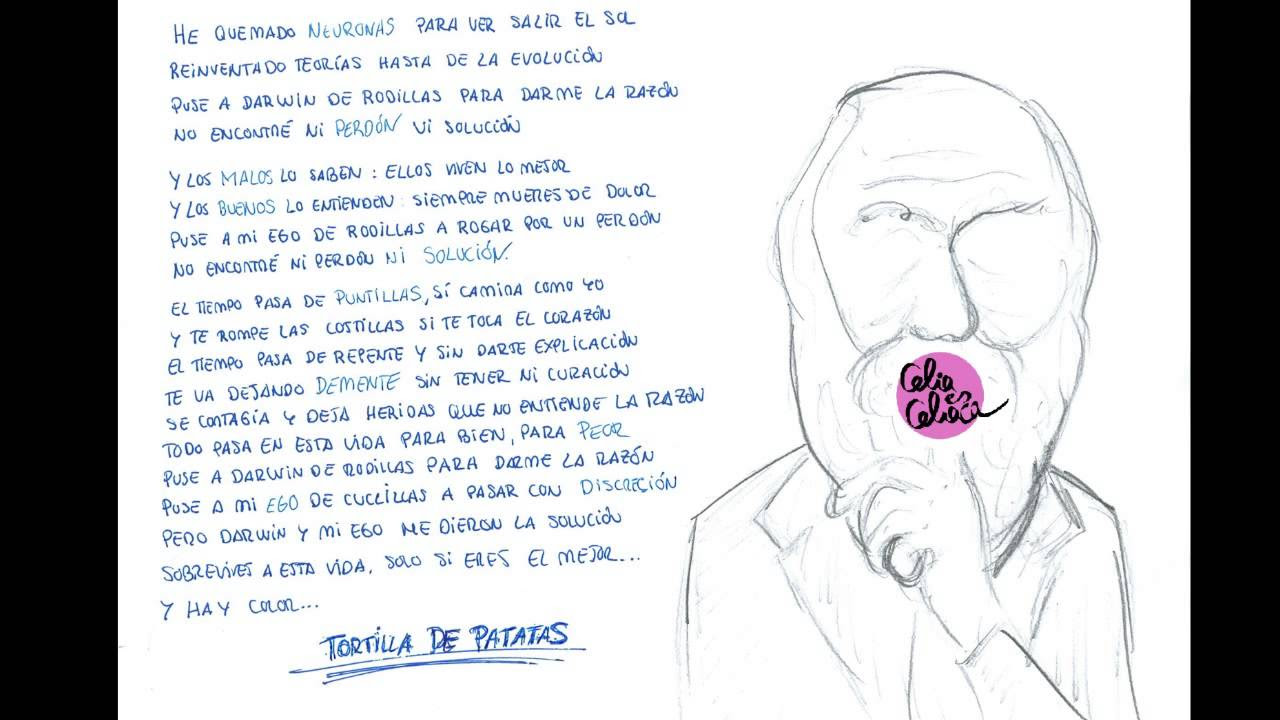 HE QUEMADO NEURONAS PARA VER SALIR EL SOL
REINVENTADO TEORÍAS HASTA DE LA EVOLUCIÓN
PUSE A DARWIN DE RODILLAS PARA DARME LA RAZÓN
NO ENCONTRÉ NI PERDÓN NI SOLUCIÓN
Y LOS MALOS LO SABEN: ELLOS VIVEN LO MEJOR
Y LOS BUENOS LO ENTIENDEN: SIEMPRE MUERES DE DOLOR
PUSE A MI EGO DE RODILLAS A ROGAR POR UN PERDÓN
NO ENCONTRÉ NI PERDÓN NI SOLUCIÓN.
EL TIEMPO PASA DE PUNTILLAS, SÍ CAMINA COMO YO
Y TE ROMPE LAS COSTILLAS SI TE TOCA EL CORAZÓN
EL TIEMPO PASA DE REPENTE Y SIN DARTE EXPLICACIÓN
TE VA DEJANDO DEMENTE SIN TENER NI CURACIÓN
SE CONTAGÍA Y DEJA HERIDAS QUE NO ENTIENDE LA RAZÓN
TODO PASA EN ESTA VIDA PARA BIEN, PARA PEOR
PUSE A DARWIN DE RODILLAS PARA DARME LA RAZÓN
PUSE A MI EGO DE CUCLILLAS A PASAR CON DISCRECIÓN
PERO DARWIN Y MI EGO ME DIERON LA SOLUCIÓN
SOBREVIVES A ESTA VIDA, SOLO SI ERES EL MEJOR...
Y HAY COLOR...
TORTILLA DE PATATAS
Celia es Celíaca